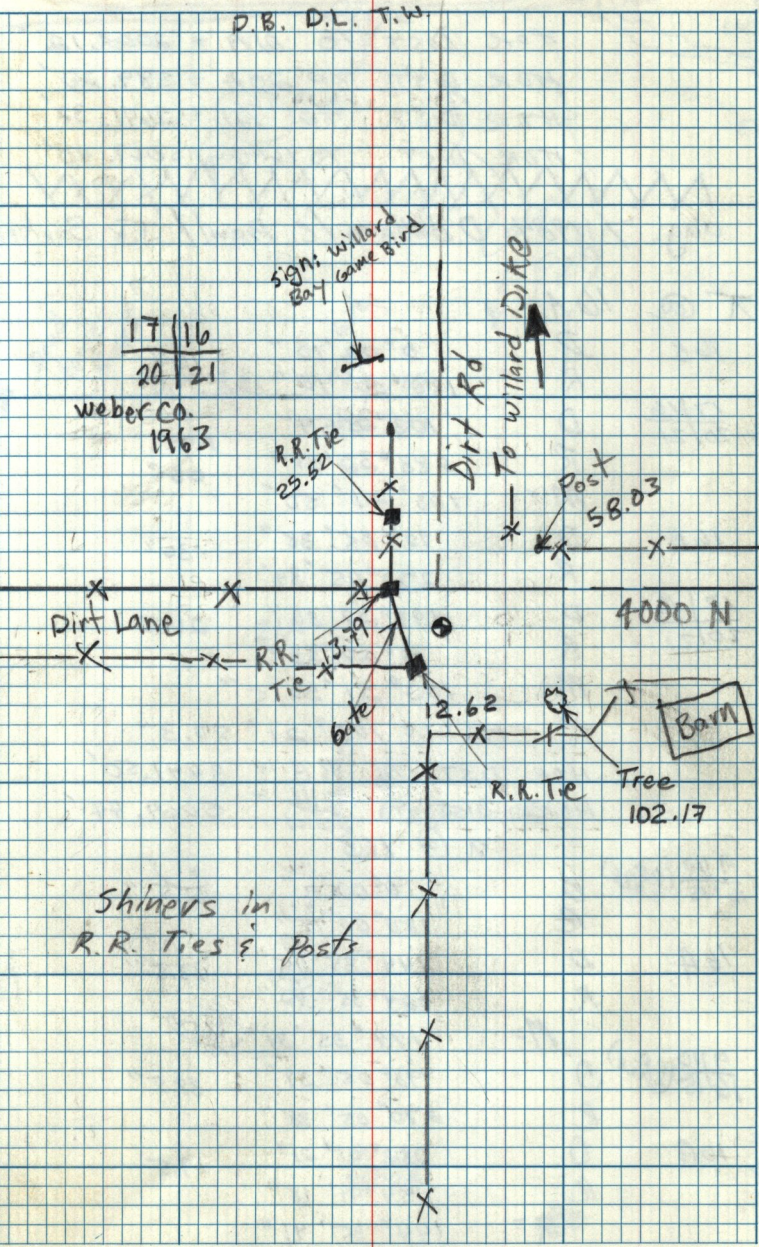 D.B. D.L. T.W.
sign: Willard
Bay Game Bird
17 16
20 21
Weber Co.
1963
R.R. Tie
25.52
Dirt Rd
To Willard Dike
Post
58.03
Dirt Lane
4000 N
R.R.
Tie
13.79
Gate
12.62
R.R. Tie
Tree
102.17
Barn
Shiners in
R.R. Ties & Posts